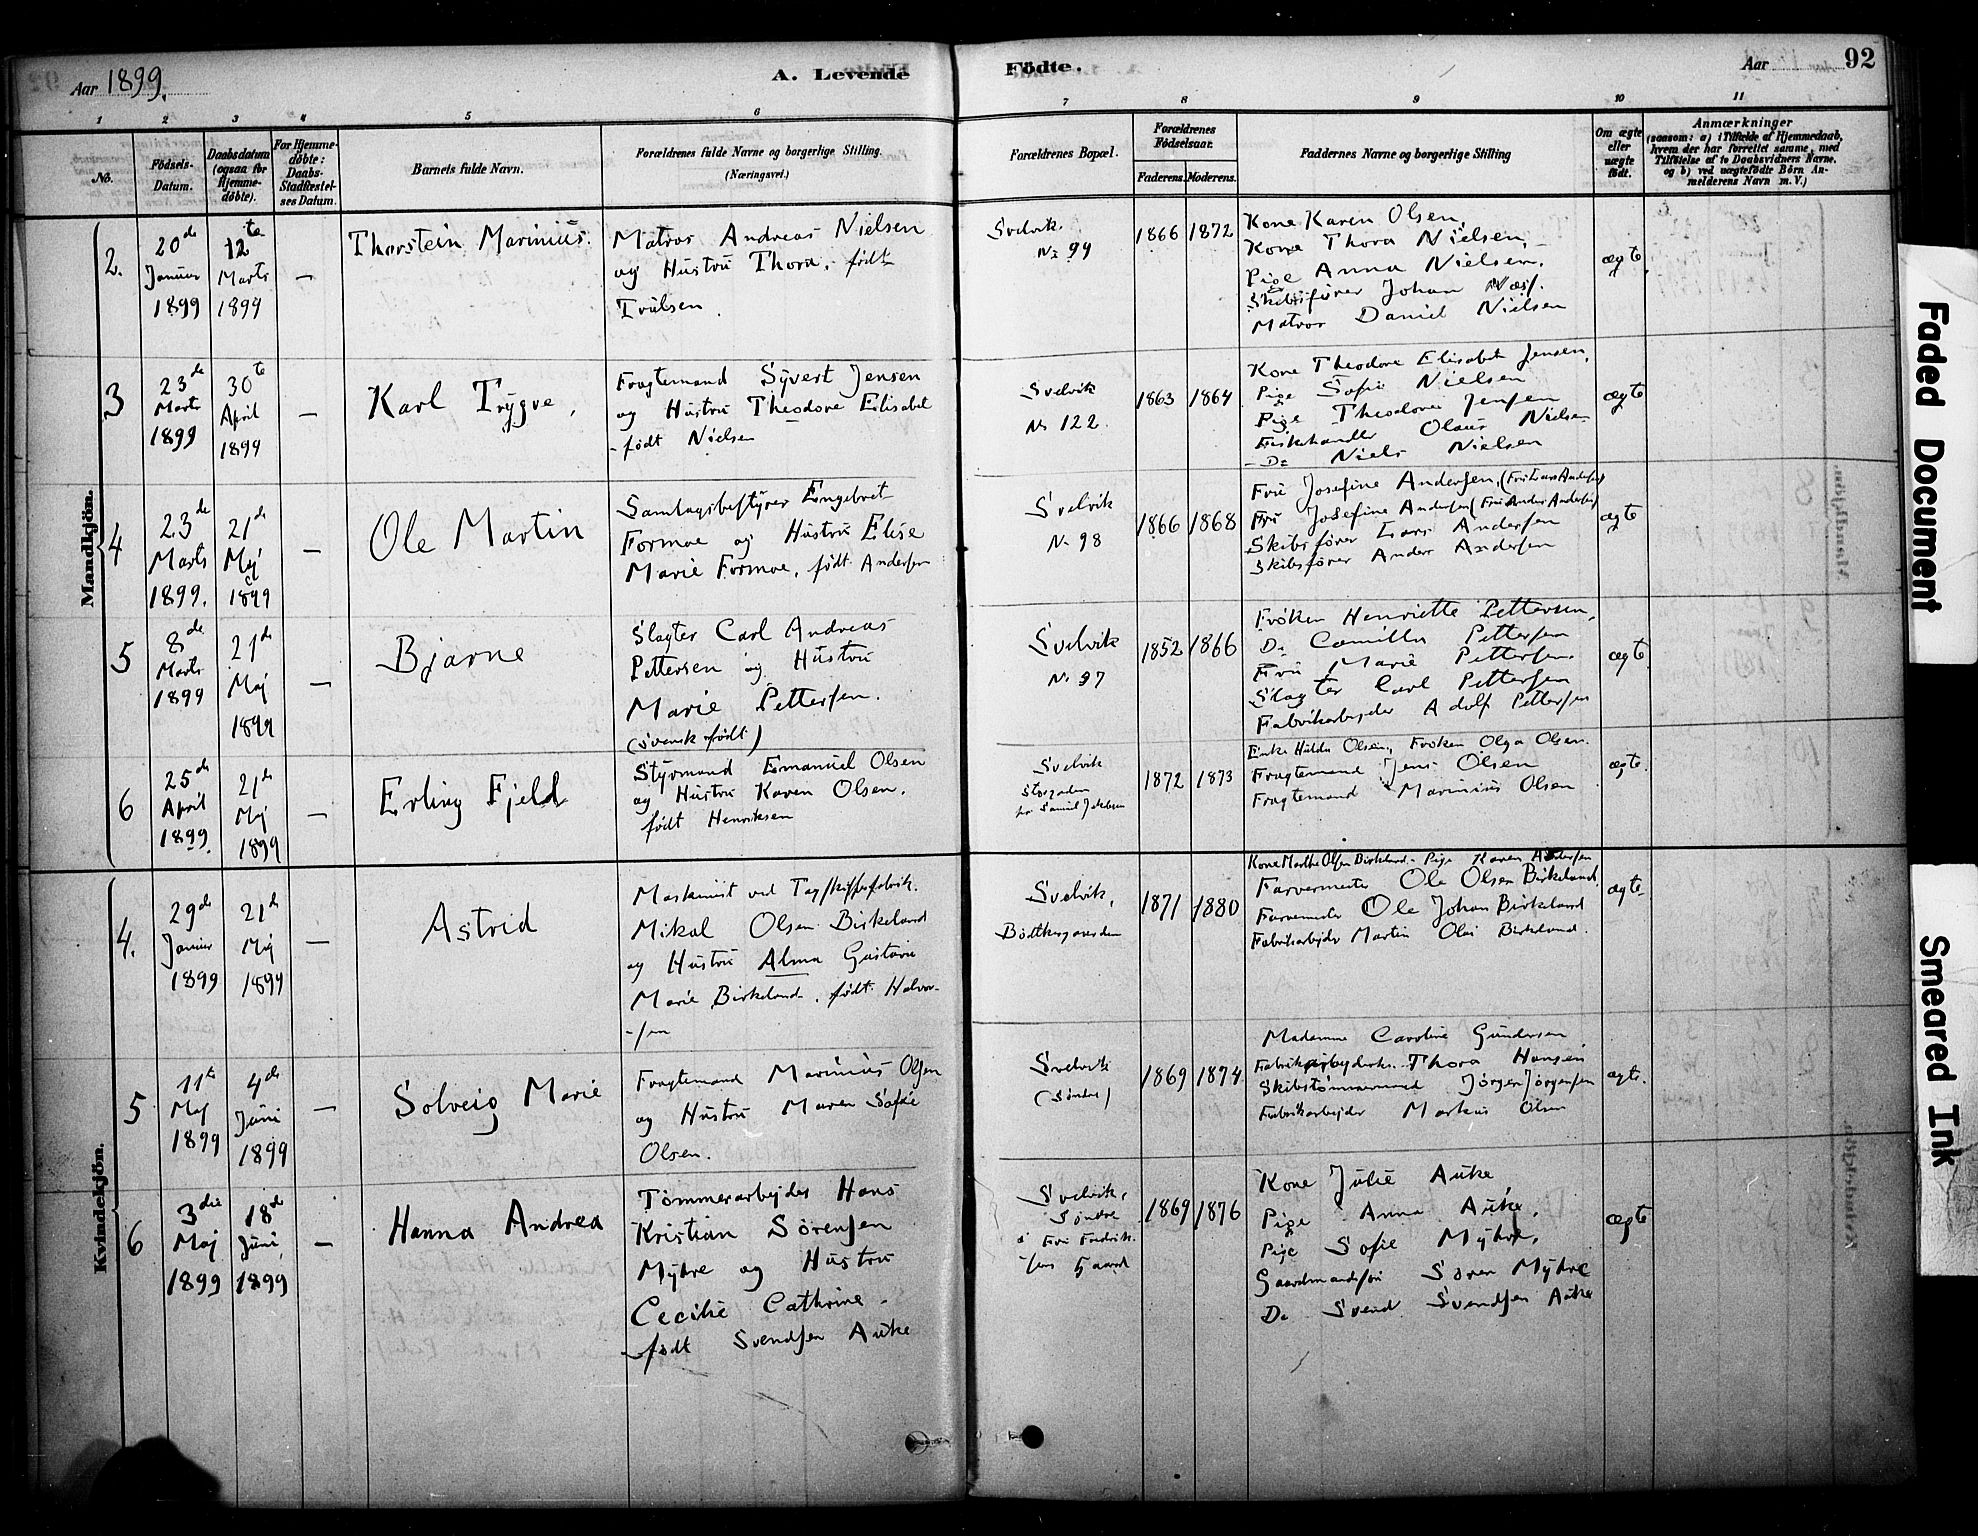 Aar 1899.
A. Levende
Födte.
Aar
92
1 2 3 4 5 6 7 8 9 10 11
No.
Födsels-
Datum.
Daabsdatum
(ogsaa for
Hjemme-
döbte).
For Hjemme-
döbte:
Daabs-
Stadfæstel-
ses Datum.
Barnets fulde Navn.
Forældrenes fulde Navne og borgerlige Stilling.
(Næringsvei.)
Forældrenes Bopæl.
Forældrenes
Födselsaar.
Faderens. Moderens.
Faddernes Navne og borgerlige Stilling
Om ægte
eller
uægte
födt.
Anmærkninger
(saasom: a) i Tilfælde af Hjemmedaab,
hvem der har forrettet samme, med
Tilföielse af to Daabsvidners Navne,
og b) ved uægtefödte Börn An-
melderens Navn m. V.)
Mandkjön.
2.
20de
Januar
1899
12te
Marts
1899
—
Thorstein Marinius.
Matros Andreas Nielsen
og Hustru Thora, født
Trulsen
Svelvik
No 99
1866 1872
Kone Karen Olsen,
Kone Thora Nielsen,
Pige Anna Nielsen,
Skibsfører Johan Næss.
Matros Daniel Nielsen
ægte
3
23de
Marts
1899
30te
April
1899
—
Karl Trygve,
Fragtemand Syvert Jensen
og Hustru Theodore Elisabet
født Nielsen
Svelvik
No 122.
1863 1864
Kone Theodore Elisabet Jensen,
Pige Sofie Nielsen
Pige Theodora Jensen
Fiskehandler Olaus Nielsen
Do Niels Nielsen
ægte
4
23de
Marts
1899.
21de
Maj
1899
—
Ole Martin
Samlagsbestyrer Engebret
Formoe og Hustru Elise
Marie Formoe, født Andersen
Svelvik
No 98
1866 1868
Fru Josefine Andersen, (Fru Lars Andersen)
Fru Josefine Andersen (Fru Anders Andersen)
Skibsfører Lars Andersen
Skibsfører Anders Andersen
ægte
5
8de
Marts
1899
21de
Maj
1899
—
Bjarne
Slagter Carl Andreas
Pettersen og Hustru
Marie Pettersen.
(svensk født)
Svelvik
No 97
1852 1866
Frøken Henriette Pettersen,
Do Camilla Pettersen
Fru Marie Pettersen
Slagter Carl Pettersen
Fabrikarbejder Adolf Pettersen
ægte.
6
25de
April
1899.
21de
Maj
1899
—
Erling Fjeld
Styrmand Emanuel Olsen
og Hustru Karen Olsen,
født Henriksen
Svelvik
Storgaden
1872 1873
Enke Hilda Olsen, Frøken Olga Olsen.
Fragtemand Jens Olsen
Fragtemand Marinius Olsen
ægte.
Kvindekjön.
4.
29de
Januar
1899
21de
Maj
1899
—
Astrid
Maskinist ved
Mikal Olsen Birkeland
og Hustru Alma Gustava
Marie Birkeland, født Halvor-
-sen
Svelvik,
Bødtkergaarden
1871 1880
Kone Marthe Olsen Birkland. Pige Karen Andersen
Farvermester Ole Olsen Birkeland,
Farvermester Ole Johan Birkland
Fabrikarbejder Martin Olai Birkeland.
ægte.
5
11te
Maj
1899
4de
Juni
1899
—
Solveig Marie
Fragtemand Marinius Olsen
og Hustru Maren Sofie
Olsen.
Svelvik
(Søndre)
1869 1874
Madamme Caroline Gundersen
Fabrikarbejderske Thora Hansen
Skibstømmermand Jørgen Jørgensen
Fabrikarbejder Markus Olsen
ægte.
6
3die
Maj
1899
18de
Juni,
1899
—
Hanna Andrea
Tømmerarbejder Hans
Kristian Sørensen
Myhre og Hustru
Cecilie Cathrine.
født Svendsen Auke
Svelvik,
Søndre
i Fru Fredrik-
sens Gaard
1869 1876
Kone Julie Auke
Pige Anna Auke,
Pige Sofie Myhre,
Gaardmandssøn Søren Myhre
Do Svend Svendsen Auke
ægte
Faded Document
Smeared Ink